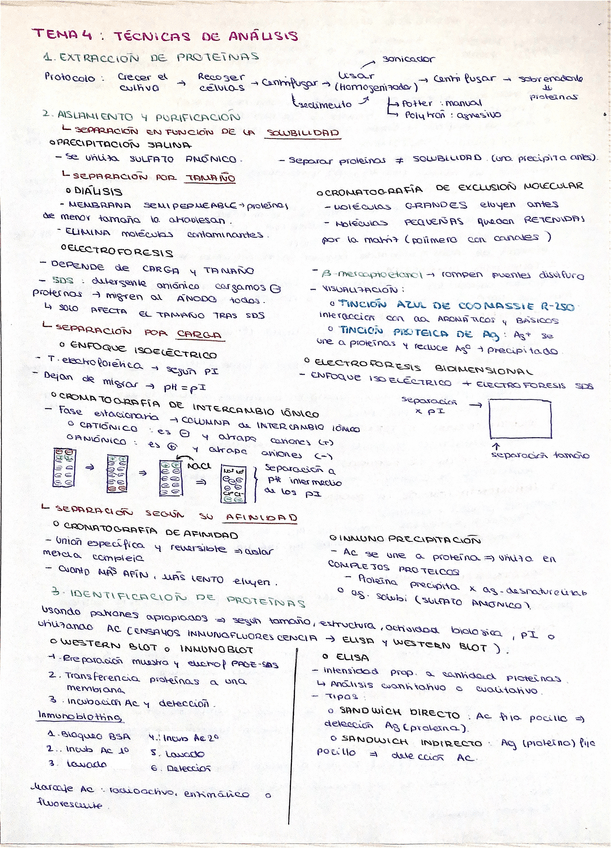 TEMA 4 : TÉCNICAS DE ANÁLISIS
1. EXTRACCIÓN DE PROTEÍNAS
sonicador
Protocolo : Crecer el cultivo → Recoger células → Centrifugar → Usar (Homogenizador) → Centrifugar → sobrenadante
proteínas
sedimento
Potter : manual
Polytron : agresivo
2. AISLAMIENTO Y PURIFICACIÓN
↳ SEPARACIÓN EN FUNCIÓN DE LA SOLUBILIDAD
o PRECIPITACIÓN SALINA
- Se utiliza SULFATO AMÓNICO.
- Separar proteínas ≠ SOLUBILIDAD. (una precipita antes).
↳ SEPARACIÓN POR TAMAÑO
o DIÁLISIS
- MEMBRANA SEMIPERMEABLE → proteínas
de menor tamaño la atraviesan.
- ELIMINA moléculas contaminantes.
o CROMATOGRAFÍA DE EXCLUSIÓN MOLECULAR
- MOLÉCULAS GRANDES eluyen antes
- Moléculas PEQUEÑAS quedan RETENIDAS
por la matriz (polímero con canales)
o ELECTROFORESIS
- DEPENDE de CARGA y TAMAÑO
- SDS : detergente aniónico cargamos ⊖
proteínas → migren al ÁNODO todas.
↳ SOLO AFECTA EL TAMAÑO TRAS SDS
- β-mercaptoetanol → rompen puentes disulfuro
- VISUALIZACIÓN :
o TINCIÓN AZUL DE COOMASSIE R-250
interacción con aa AROMÁTICOS y BÁSICOS
o TINCIÓN PROTEICA DE Ag : Ag+ se
une a proteínas y reduce Ag⁰ → precipitado.
↳ SEPARACIÓN POR CARGA
o ENFOQUE ISOELÉCTRICO
- T. electroforética → según PI
- Dejan de migrar → pH = pI
o ELECTROFORESIS BIDIMENSIONAL
- ENFOQUE ISOELÉCTRICO + ELECTROFORESIS SDS
separación
x pI
separación tamaño
o CROMATOGRAFÍA DE INTERCAMBIO IÓNICO
- Fase estacionaria → COLUMNA de INTERCAMBIO IÓNICO
o CATIÓNICO : es ⊖ y atrapa cationes (+)
o ANIÓNICO : es ⊕ y atrapa aniones (-)
NaCl
separación a
pH intermedio
de los pI
↳ SEPARACIÓN SEGÚN SU AFINIDAD
o CROMATOGRAFÍA DE AFINIDAD
- Unión específica y reversible ⇒ aislar
mezcla compleja
- Cuanto MÁS AFÍN, MÁS LENTO eluyen.
o INMUNOPRECIPITACIÓN
- Ac se une a proteína ⇒ utiliza en
COMPLEJOS PROTEICOS
- Proteína precipita x ag. desnaturalizab
o ag. solubi (SULFATO AMÓNICO).
3. IDENTIFICACIÓN DE PROTEÍNAS
Usando patrones apropiados ⇒ según tamaño, estructura, actividad biológica, pI o
utilizando AC (ENSAYOS INMUNOFLUORESCENCIA → ELISA y WESTERN BLOT).
o WESTERN BLOT o INMUNOBLOT
1. Preparación muestra y electrof PAGE-SDS
2. Transferencia proteínas a una
membrana
3. Incubación Ac y detección.
Inmunoblotting
1. Bloqueo BSA
2. Incub Ac 1º
3. Lavado
4. Incub Ac 2º
5. Lavado
6. Detección
Marcaje Ac : radioactivo, enzimático o
fluorescente.
o ELISA
- Intensidad prop. a cantidad proteínas.
↳ Análisis cuantitativo o cualitativo.
- Tipos :
o SANDWICH DIRECTO : Ac fija pocillo ⇒
detección Ag (proteína).
o SANDWICH INDIRECTO : Ag (proteína) fija
pocillo ⇒ detección AC.